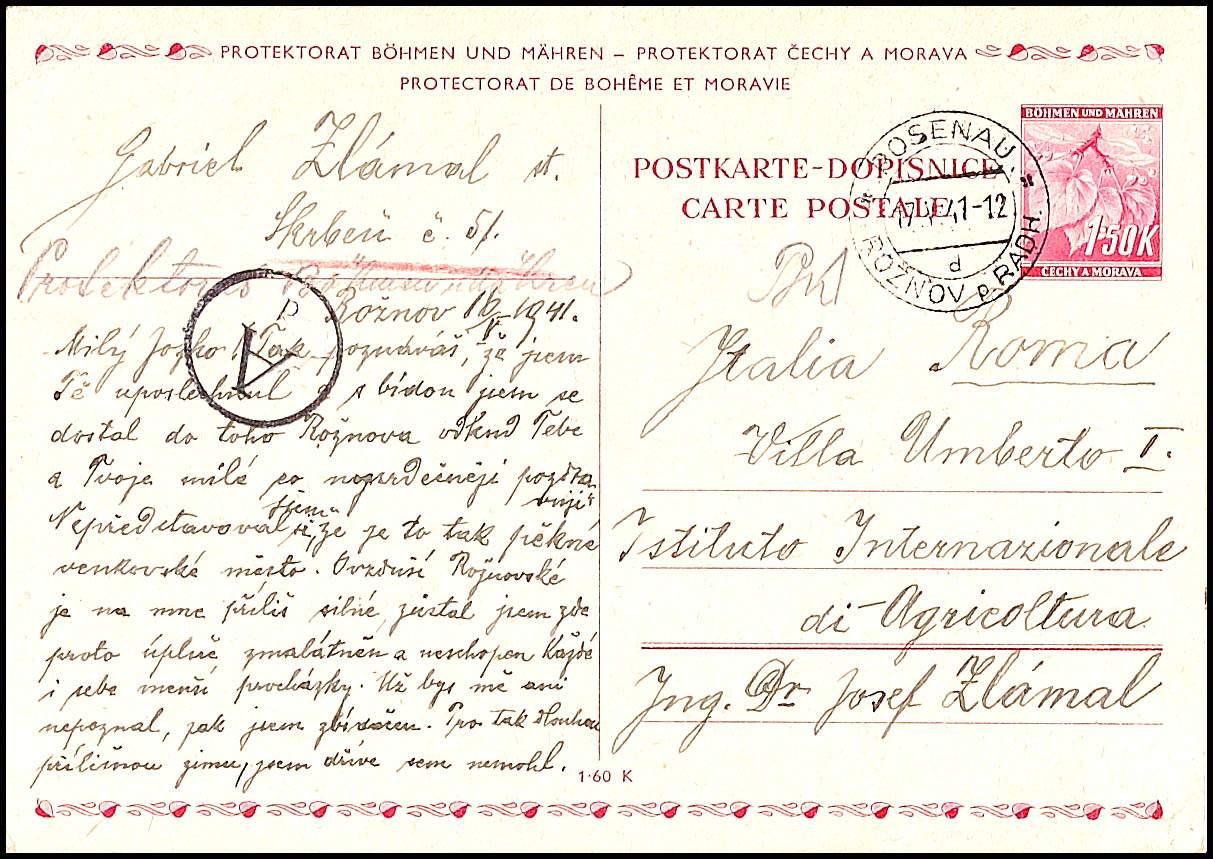 PROTEKTORAT BÖHMEN UND MÄHREN – PROTEKTORAT ČECHY A MORAVA
PROTECTORAT DE BOHÊME ET MORAVIE
Gabriel Zlámal st.
Skrbeň č. 51.
Protektorat Böhmen und Mähren
Rožnov 16/V 1941.
Milý Jožko! Tak poznáváš, že jsem
Tě uposlechnul a s bídou jsem se
dostal do toho Rožnova odkud Tebe
a Tvoje milé co nejsrdečněji pozdra
vuji
Nepředstavoval jsem si, že je to tak pěkné
venkovské město. Ovzduší Rožnovské
je na mne příliš silné, zůstal jsem zde
proto úplně zmalátněn a neschopen každé
i sebe menší procházky. Už bys mě ani
nepoznal, jak jsem zbídačen. Pro tak dlouhou
přílišnou zimu, jsem dříve sem nemohl.
A
d
POSTKARTE-DOPISNICE
CARTE POSTALE
ROSENAU
ROŽNOV p. RADH.
17. V. 41-12
d
BÖHMEN UND MÄHREN
1·50 K
ČECHY A MORAVA
Italia Roma
Villa Umberto I.
Istituto Internazionale
di Agricoltura
Ing. Dr Josef Zlámal
1·60 K